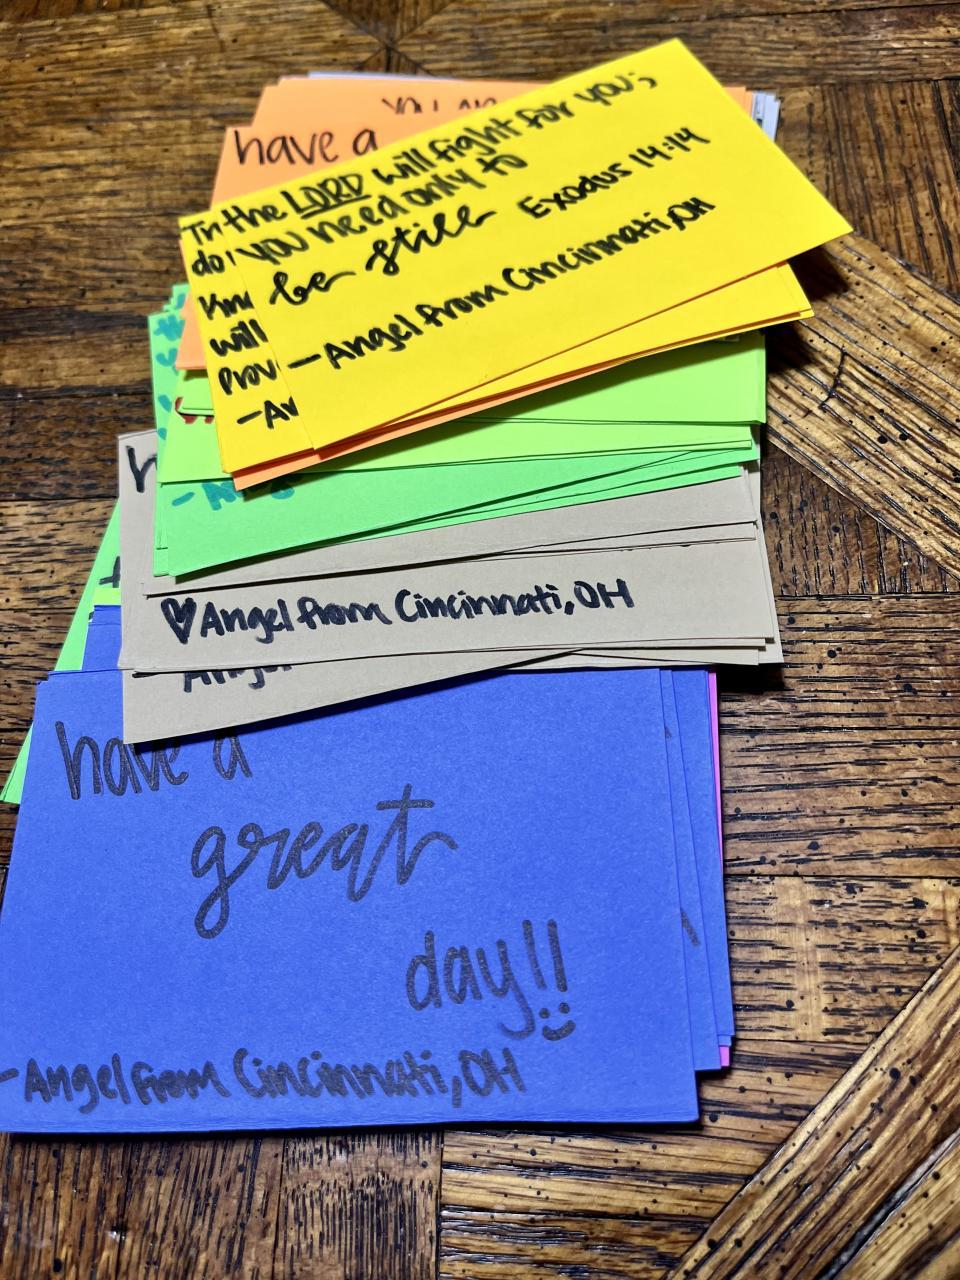 you ar
have a
the LORD will fight for you;
you need only to
be still Exodus 14:14
—Angel from Cincinnati, OH
do
will
♡Angel from Cincinnati, OH
Angel
have a
great
day!!
-Angel from Cincinnati, OH